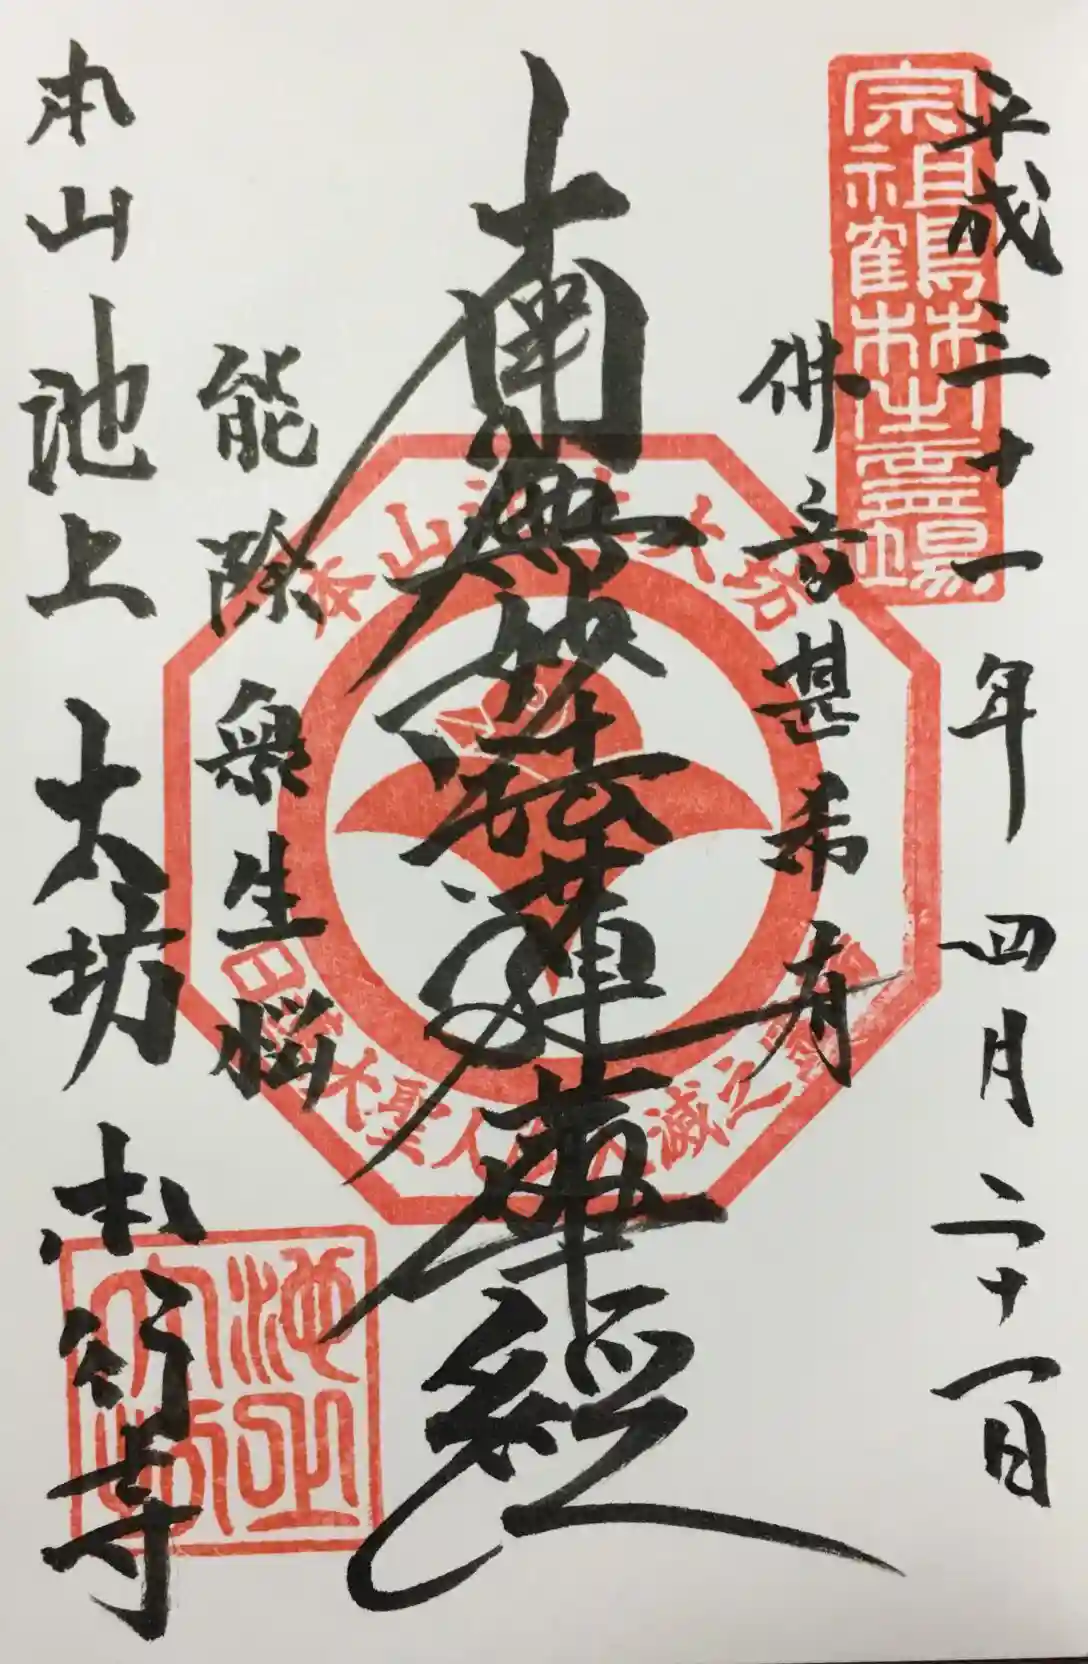 平成三十一年四月二十一日
宗祖鶴林
之霊場
佛音甚希有
南無妙法蓮華経
能除衆生悩
本山池上大坊
大聖人御入滅之霊場
本山 池上 大坊 本行寺
池上
大坊